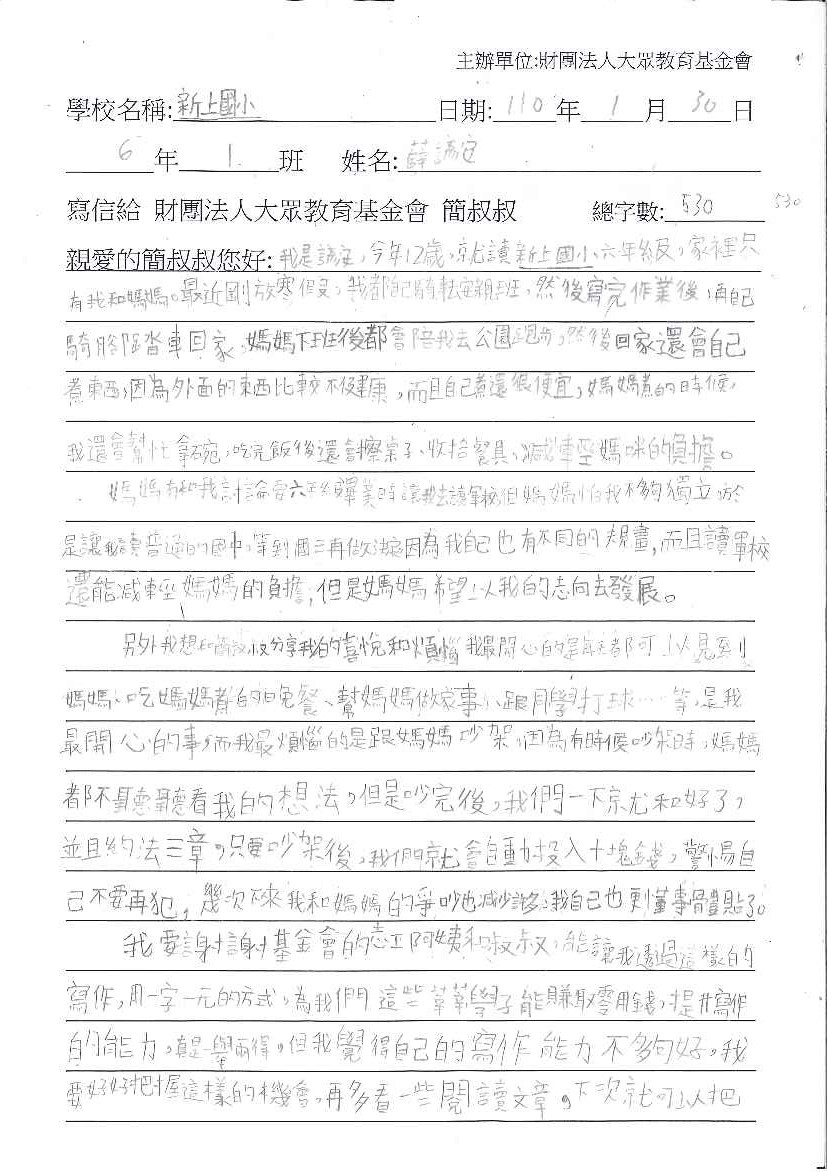 主辦單位:財團法人大眾教育基金會
學校名稱:新上國小 日期:110年1月30日
6年1班 姓名:薛
寫信給 財團法人大眾教育基金會 簡叔叔 總字數:530 530
親愛的簡叔叔您好:我是,今年12歲,就讀新上國小六年級,家裡只
有我和媽媽。最近剛放寒假,我都自己騎車去安親班,然後寫完作業後,再自
騎腳踏車回家,媽媽下班後都會陪我去公園跑步,然後回家還會自己
煮東西,因為外面的東西比較不健康,而且自己煮還很便宜,媽媽煮的時候,
我還會幫忙拿碗,吃完飯後還會擦桌子、收拾餐具,減輕媽咪的負擔。
媽媽有和我討論要六年級畢業時讓我去讀軍校但媽媽怕我不夠獨立,於
是讓我讀普通的國中,等到國三再做決定因為我自己也有不同的規畫,而且讀軍校
還能減輕媽媽的負擔,但是媽媽希望以我的志向去發展。
另外我想和簡叔叔分享我的喜悅和煩惱,我最開心的是每天都可以見到
媽媽、吃媽媽煮的晚餐、幫媽媽做家事、跟同學打球……等,是我
最開心的事,而我最煩惱的是跟媽媽吵架,因為有時候吵架時,媽媽
都不聽聽看我的想法,但是吵完後,我們一下就和好了,
並且約法三章,只要吵架後,我們就會自動投入十塊錢,警惕自
己不要再犯,幾次下來我和媽媽的爭吵也減少許多,我自己也更懂事體貼了。
我要謝謝基金會的志工阿姨和叔叔,能讓我透過這樣的
寫作,用一字一元的方式,為我們這些莘莘學子能賺取零用錢,提升寫作
的能力,真是一舉兩得,但我覺得自己的寫作能力不夠好,我
要好好把握這樣的機會,再多看一些閱讀文章,下次就可以把